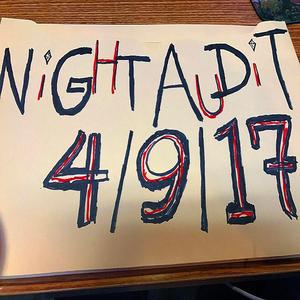 NiGHT AUDiT
4/9/17